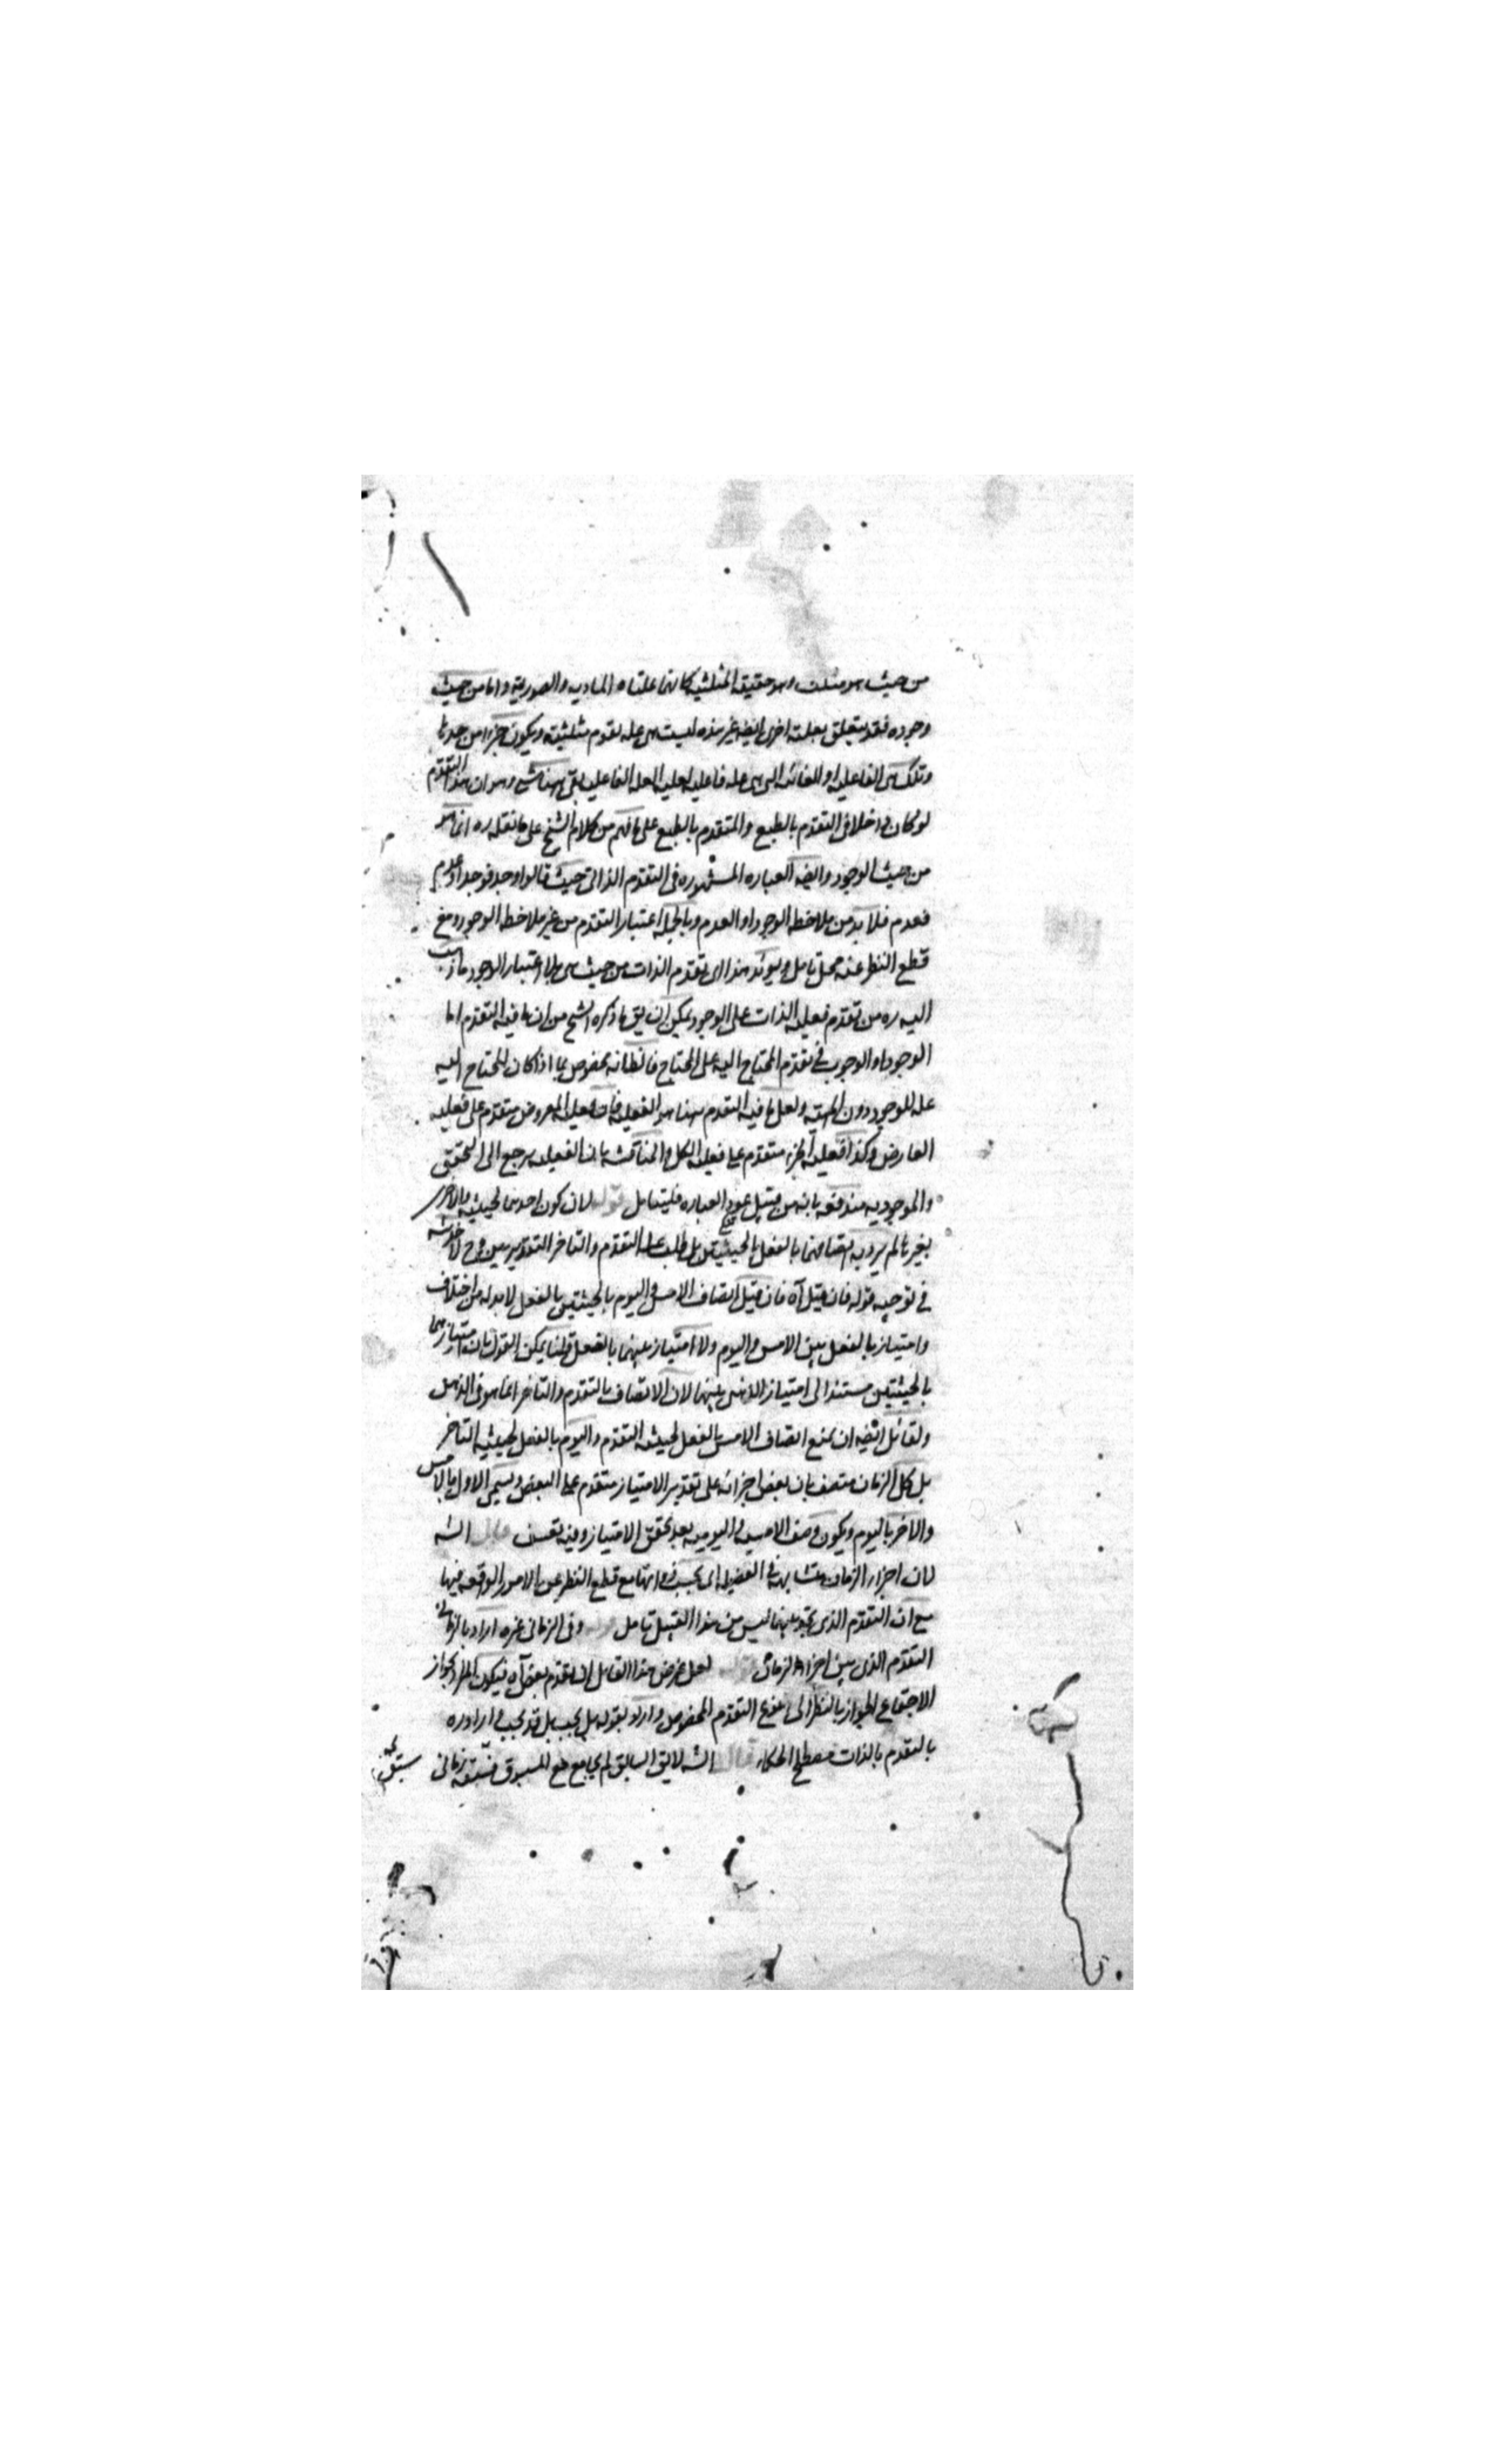 من حيث هو مثلث وهو حقيقة المثلثية كانهما علتاه المادية والصورية واما من حيث
وجوده فقد يتعلق بعلة اخرى ايضا غير هذه ليست هى علة تقوم مثلثيته ويكون جزءا من حدها
وتلك هى الفاعلية او الغائية التى هى علة فاعلية لعلية العلة الفاعلية بقى ههنا شئ وهو ان هذا التقدم
لو كان داخلا فى التقدم بالطبع والمتقدم بالطبع على ما فهم من كلام الشيخ على ما نقله ره انما هو
من حيث الوجود وايضا العبارة المشهورة فى التقدم الذاتى حيث قالوا وجد فوجد او عدم
فعدم فلا بد من ملاحظة الوجود او العدم وبالجملة اعتبار التقدم من غير ملاحظة الوجود ومع
قطع النظر عنه محل تامل ويؤيد هذا اى تقدم الذات من حيث هى بلا اعتبار الوجود ما ذهب
اليه ره من تقدم فعلية الذات على الوجود يمكن ان يق ما ذكره الشيخ من ان ما فيه التقدم اما
الوجود او الوجوب فى تقدم المحتاج اليه على المحتاج فالظ انه مخصوص بما اذا كان المحتاج اليه
علة للوجود دون المهية ولعل ما فيه التقدم ههنا هو الفعلية فان فعلية المعروض متقدم على فعلية
العارض وكذا فعلية الجزء متقدم على فعلية الكل والمناقشة بان الفعلية يرجع الى التحقق
والموجودية مندفعة بانه من قبيل عوز العبارة فليتامل قوله لان كون احدهما بحيثية والاخرى
بغيرها لم يرد به اتصافهما بالفعل بالحيثيتين بل طلب علة التقدم والتاخر التقديريين وح لا خدشة
فى توجيه قوله فان قيل آه فان قيل اتصاف الامس واليوم بالحيثيتين بالفعل لا بد له من اختلاف
وامتياز بالفعل بين الامس واليوم ولا امتياز بينهما بالفعل قلنا يمكن القول بان امتيازهما
بالحيثيتين مستند الى امتياز الذهنى بينهما لان الاتصاف بالتقدم والتاخر انما هو فى الذهن
ولقائل ايضا ان يمنع اتصاف الامس بالفعل بحيثية التقدم واليوم بالفعل بحيثية التاخر
بل كل الزمان متصف بان بعض اجزائه على تقدير الامتياز متقدم على البعض ويسمى الاول بالامس
والاخر باليوم ويكون وصف الامسية واليومية بعد تحقق الامتياز وفيه تعسف قال الش
لان اجزاء الزمان متشابهة فى الفضيلة اى بحسب ذواتها مع قطع النظر عن الامور الواقعة فيها
مع ان التقدم الذى بينها ليس من هذا القبيل تامل قوله وفى الزمانى غيره اراد بالزمانى
التقدم الذى بين اجزاء الزمان قوله لعل غرض هذا القائل ان تقدم بعض آه فيكون المراد بجواز
الاجتماع الجواز بالنظر الى نوع التقدم المخصوص واراد بقوله بل يجب بل قد يجب وارادته
بالتقدم بالذات مصطلح الحكماء قال الش لا يق السابق لم يجامع مع المسبوق فسبقه زمانى